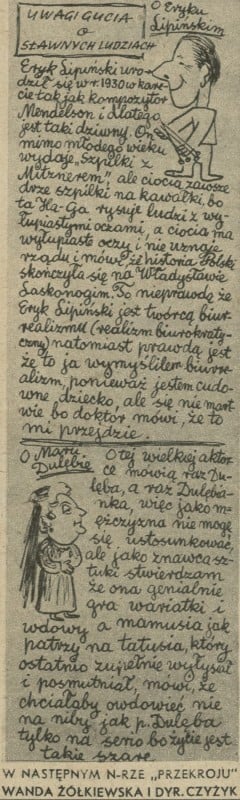 UWAGI GUCIA
O
SŁAWNYCH LUDZIACH
O Eryku
Lipińskim
Eryk Lipiński uro-
dził się w r. 1930 w kare-
cie tak jak kompozytor
Mendelson i dlatego
jest taki dziwny. On
mimo młodego wieku
wydaje „Szpilki z
Mitznerem", ale ciocia zawsze
drze szpilki na kawałki, bo
ta Ha-Ga rysuje ludzi z wy-
łupiastymi oczami, a ciocia ma
wyłupiaste oczy i nie uznaje
rządu i mówi, że historia Polski
skończyła się na Władysławie
Laskonogim. To nieprawda że
Eryk Lipiński jest twórcą biur-
realizmu (realizm biurokraty-
czny) natomiast prawdą jest
że to ja wymyśliłem biurre-
alizm, ponieważ jestem cudo-
wne dziecko, ale się nie mart-
wię bo doktor mówi, że to
mi przejdzie.
O Marii
Dulębie
O tej wielkiej aktor-
ce mówią raz Du-
lęba, a raz Dulębian-
ka, więc jako m-
ężczyzna nie mogę
się ustosunkować,
ale jako znawca sz-
tuki stwierdzam
że ona genialnie
gra wariatki i
wdowy a mamusia jak
patrzy na tatusia, który
ostatnio zupełnie wyłysiał
i posmutniał, mówi, że
chciałaby owdowieć nie
na niby jak p. Dulęba
tylko na serio bo życie jest
takie szare.
W NASTĘPNYM N-RZE „PRZEKROJU"
WANDA ŻÓŁKIEWSKA I DYR. CZYŻYK